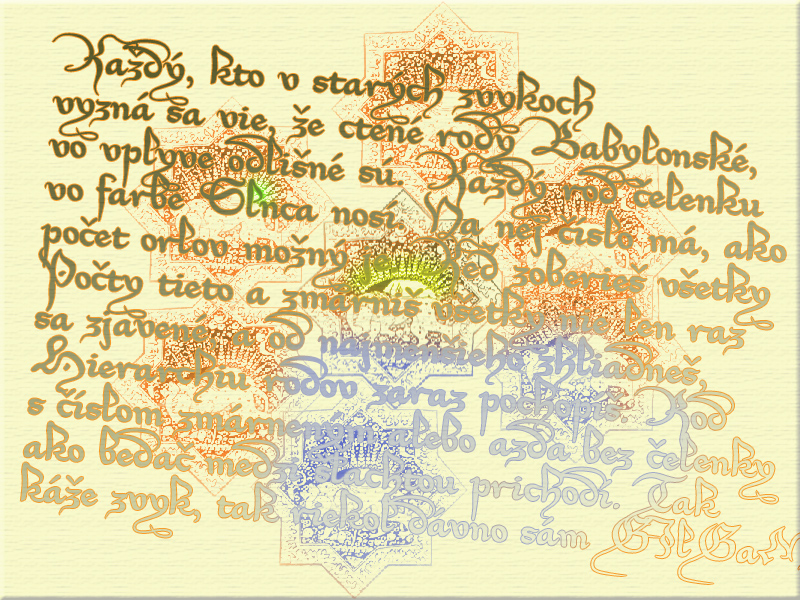 Každý, kto v starých zvykoch
vyzná sa vie, že ctené rody Babylonské,
vo vplyve odlišné sú. Každý rod čelenku
vo farbe Slnca nosí. Na nej číslo má, ako
počet orlov možný je. Keď zoberieš všetky
Počty tieto a zmárniš všetky nie len raz
sa zjavené, a od najmenšieho zhliadneš,
Hierarchiu rodov zaraz pochopíš. Rod
s číslom zmárneným alebo azda bez čelenky
ako bedač medzi šlachtou prichodí. Tak
káže zvyk, tak riekol dávno sám GIlGaM